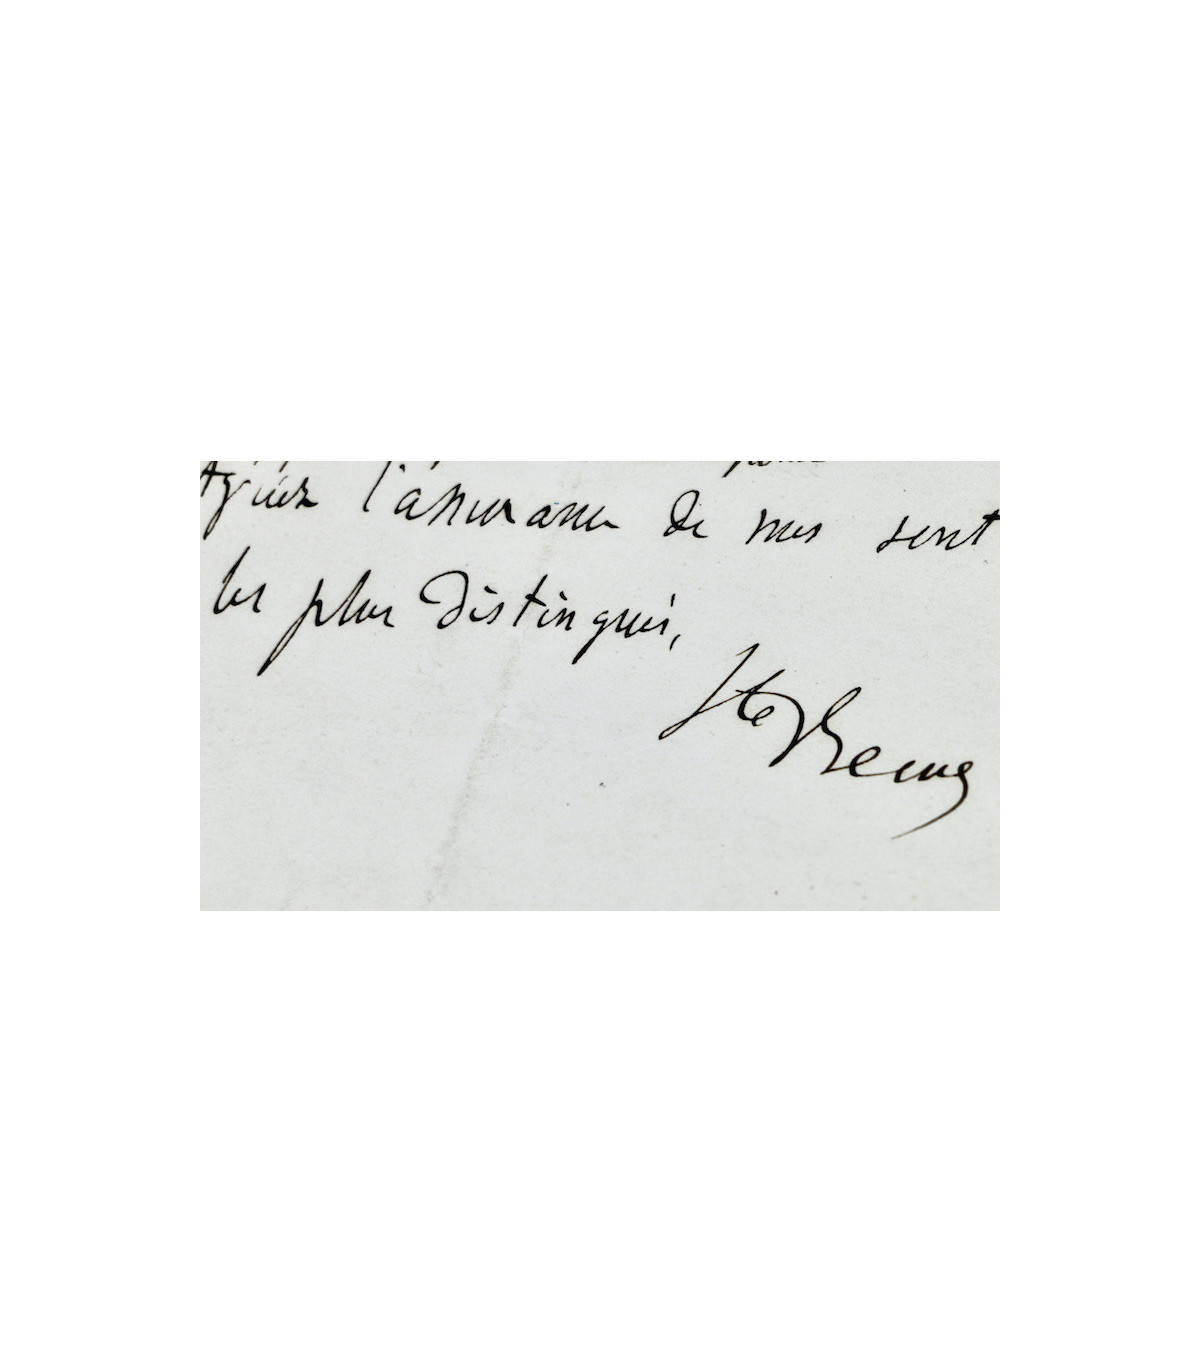 Agréez l'assurance de mes sent
les plus distingués,
Ste Beuve